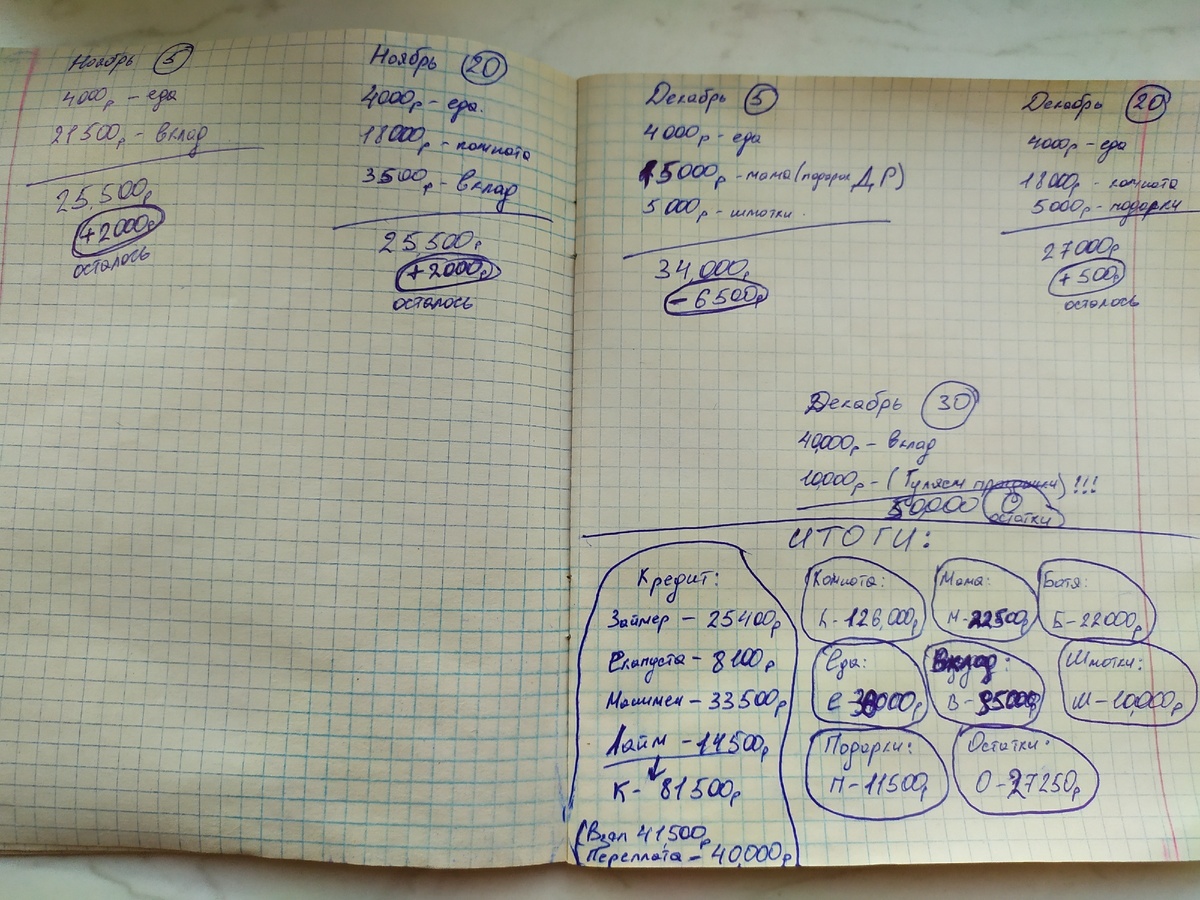 Ноябрь 5
4000р – еда
21500р – вклад
25.500р
+2000р
осталось
Ноябрь 20
4000р – еда.
18000р – комната
3500р – вклад
25.500р
+2000р
осталось
Декабрь 5
4000р – еда
15000р – мама (подарок ДР)
5000р – шмотки.
34,000р
– 6500р
Декабрь 20
4000р – еда
18000р – комната
5000р – подарки
27000р
+500р
осталось
Декабрь 30
40,000р – вклад
10,000р – (Гуляем) !!!
50,000 0
остатки
ИТОГИ:
Кредит:
Займер – 25400р
Екапуста – 8100р
Манимен – 33500р
Лайм – 14500р
К – 81500р
(Взял 41,500р
Переплата – 40,000р
Комната:
К – 126,000р
Мама:
М – 22500р
Батя:
Б – 22000р
Еда:
Е – 38000р
Вклад:
В – 95000р
Шмотки:
Ш – 10,000р
Подарки:
П – 11500р
Остатки:
О – 27250р